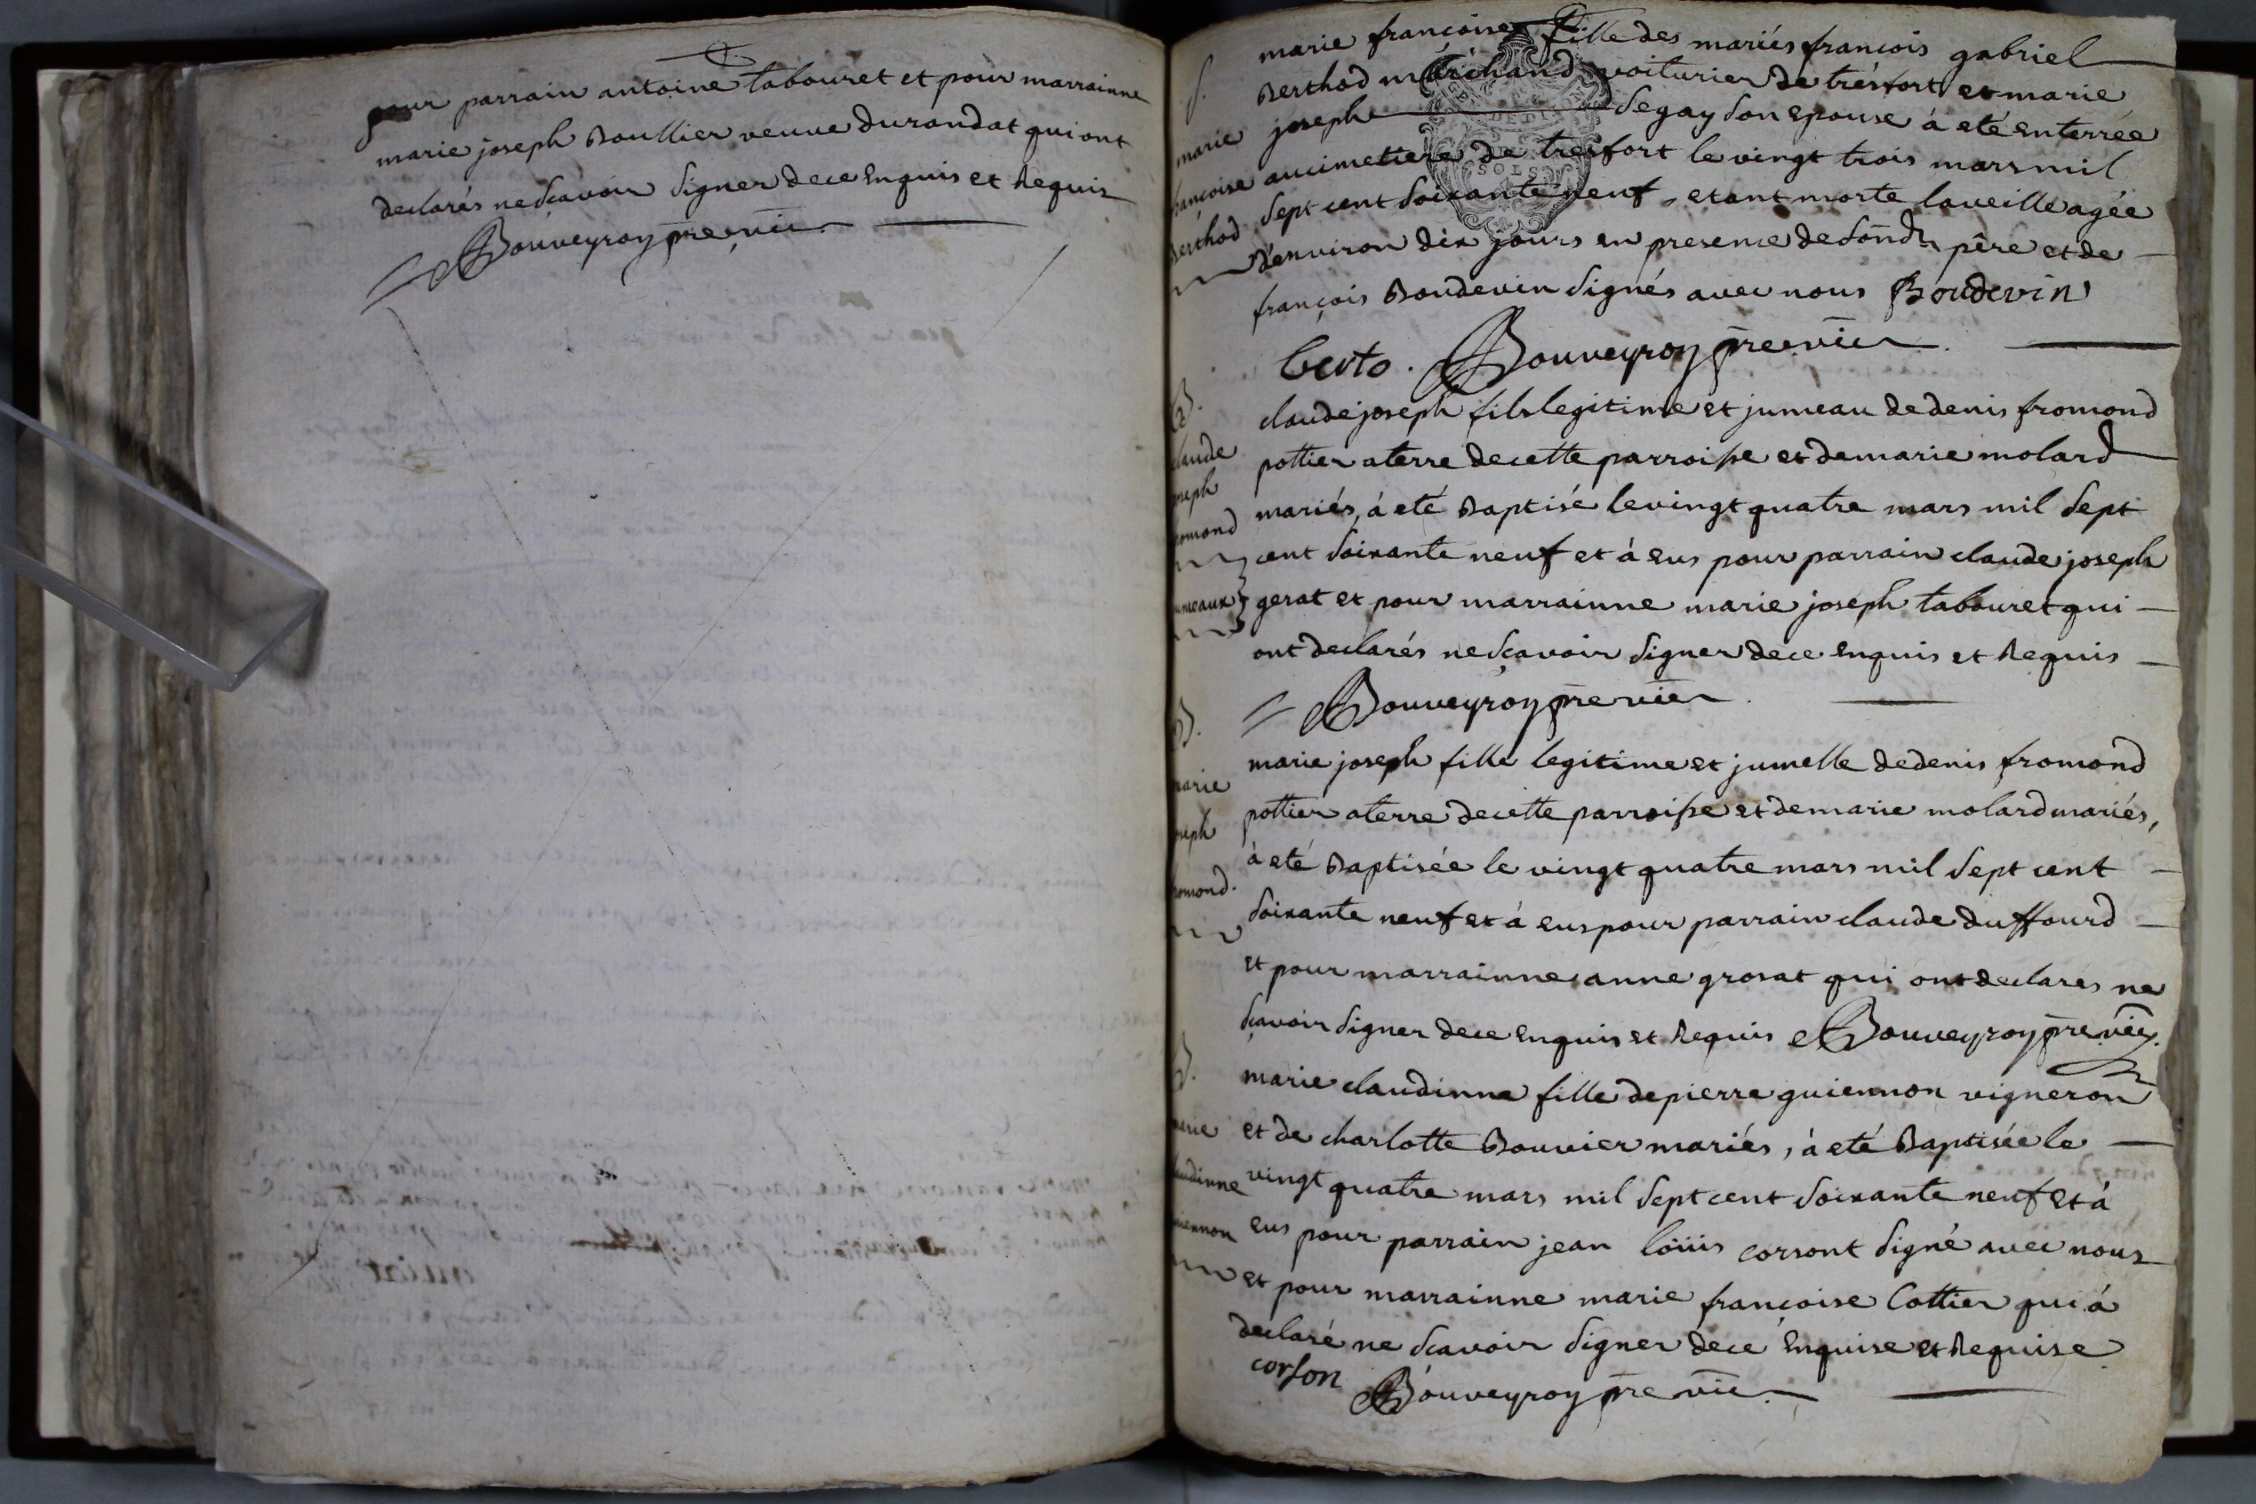 pour parrain antoine tabouret et pour marrainne
marie joseph Boullier veuve durandat qui ont
declarés ne sçavoir signer de ce enquis et Requis
Bouveyron pre vic
marie françoise fille des mariés françois gabriel
Berthod marchand voiturier de tresfort et marie
joseph segay son epouse à eté enterrée
au cimetiere de tresfort le vingt trois mars mil
sept cent soixante neuf, etant morte la veille agée
d'environ dix jours en presence de sond. père et de
françois Boudevin signés avec nous Boudevin
berto. Bouveyron pre vic
S.
marie
françoise
Berthod
claude joseph fils legitime et jumeau de denis fromond
pottier a terre de cette parroisse et de marie molard
mariés, à eté Baptisé le vingt quatre mars mil sept
cent soixante neuf et à eus pour parrain claude joseph
gerat et pour marrainne marie joseph tabouret qui
ont declarés ne sçavoir signer de ce enquis et Requis
Bouveyron pre vic
B.
claude
joseph
fromond
jumeaux
marie joseph fille legitime et jumelle de denis fromond
pottier a terre de cette parroisse et de marie molard mariés,
à eté Baptisée le vingt quatre mars mil sept cent
soixante neuf et à eus pour parrain claude duffourd
et pour marrainne anne grosat qui ont declarés ne
sçavoir signer de ce enquis et Requis Bouveyron pre vic.
B.
marie
joseph
fromond.
marie claudinne fille de pierre guiennon vigneron
et de charlotte Bouvier mariés, à eté Baptisée le
vingt quatre mars mil sept cent soixante neuf et à
eus pour parrain jean loüis corsont signé avec nous
et pour marrainne marie françoise Cottier qui à
declaré ne sçavoir signer de ce enquise et Requise
corson Bouveyron pre vic
B.
marie
claudinne
guiennon